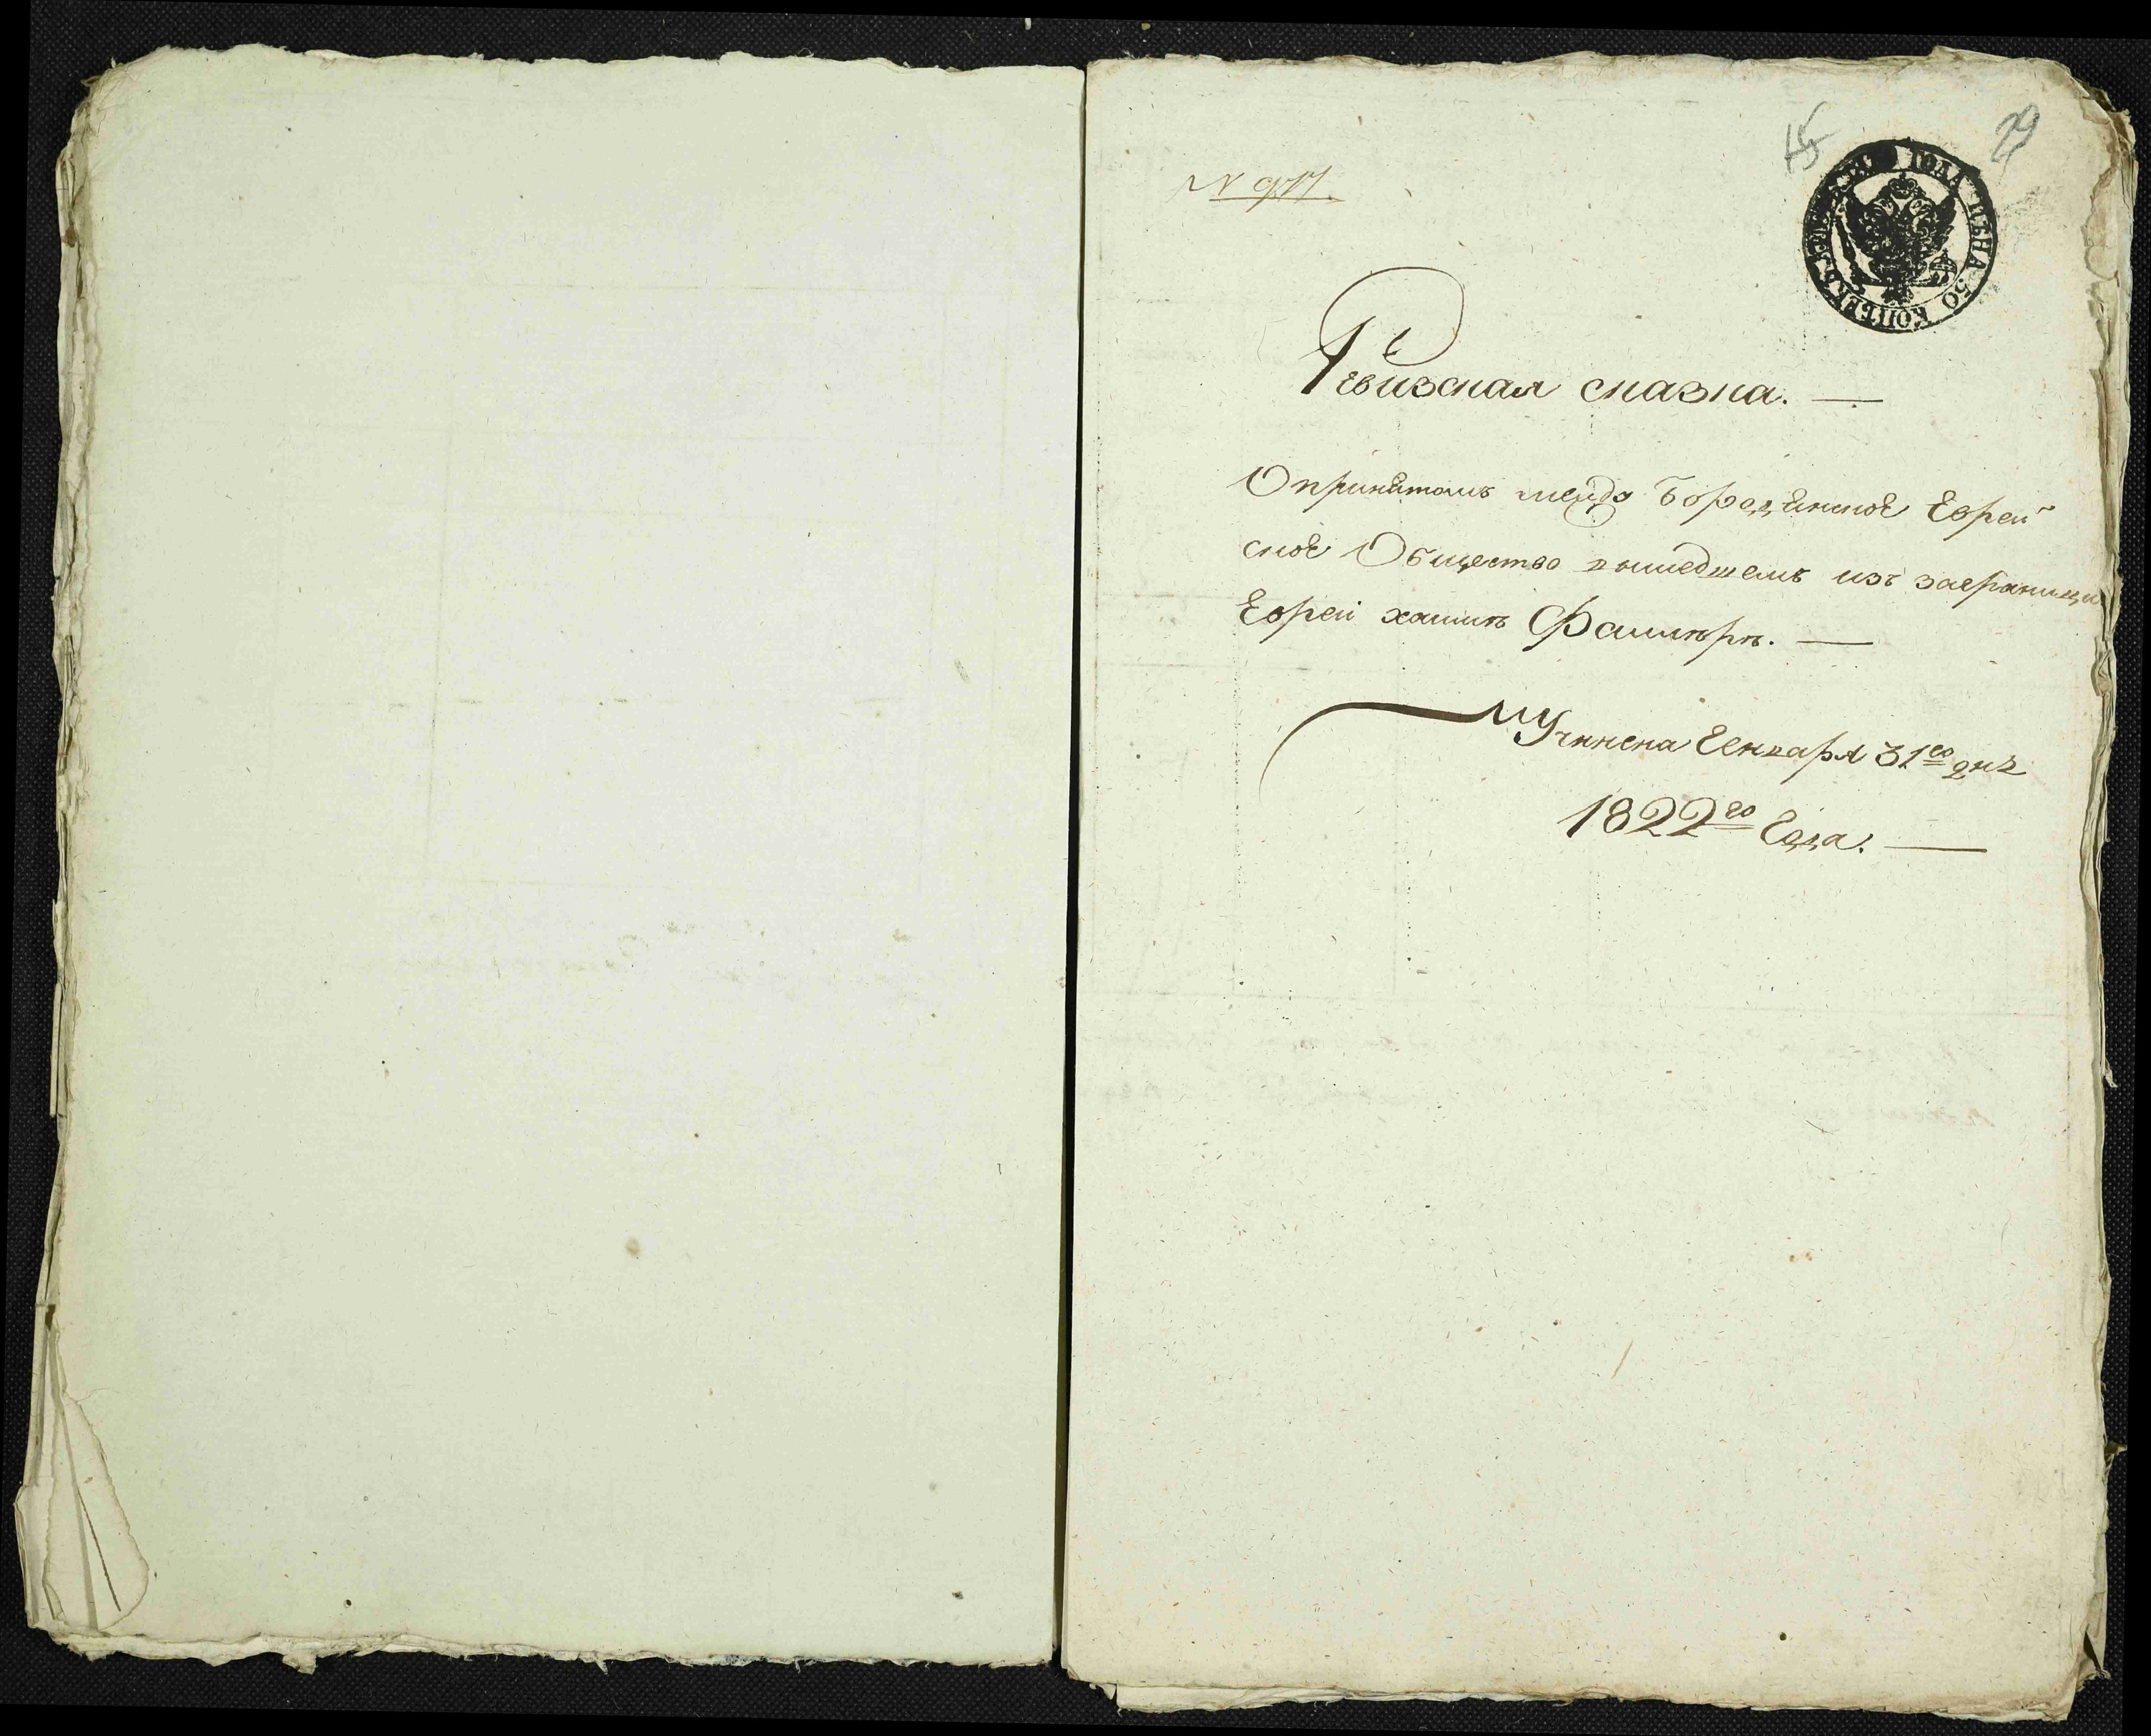 15
29
N 977.
ЦѢНА 50 КОПѢЕКЪ
Ревизская сказка. —
О принятомъ межъдо Бородянское Еврей
ское Общество вышедшемъ изъ заграницы
Еврей хаимъ Фаинѣръ. —
Учинена Генваря 31го дня
1822го Года. —